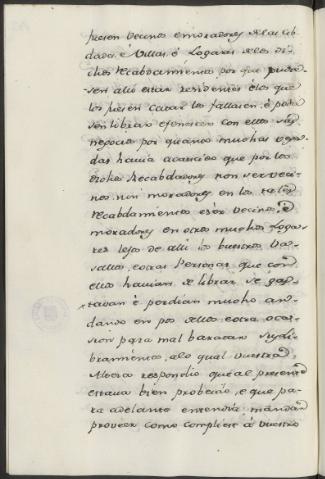 fuesen vecinos e moradores de las cib
dades, é Villas é Logares de los di
chos recabdamientos, por que pudie
sen alli estar residentes é los que
los fuesen catar los fallasen, é pu
sen librar é fenescer con ellos sus
negocios por quanto muchas vega
das havia acaescido que por los
dichos Recabdadores non ser veci
nos nin moradores en los tales
recabdamientos é ser vecinos, é
moradores en otros muchos Loga
res lejos de alli los buestros Va
sallos, é otras Personas que con
ellos havian de librar se gas
tavan é perdian mucho an
dando en pos dellos é otra oca
sion para mal baratar sus li
bramientos, a lo qual vuestra
Alteza respondió que al presente
estava bien probeido, e que pa
ra adelante entendia mandar
proveer como cumpliese á vuestro